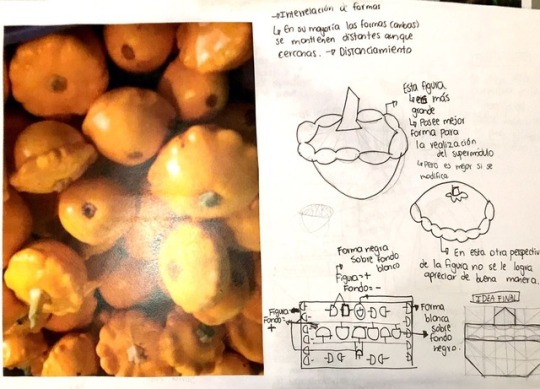 →Interrelación de formas
↳ En su mayoría las formas (ambas)
se mantienen distantes aunque
cercanas. → Distanciamiento
Esta figura
↳ es más
grande
↳ Posee mejor
forma para
la realización
del supermódulo
↳ Pero es mejor si se
modifica
↳ En esta otra perspectiv
de la figura no se le logra
apreciar de buena manera.
Forma negra
sobre fondo
blanco
Figura=+
Fondo=-
Figura=-
Fondo=
+
Forma
blanca
sobre
fondo
negro.
IDEA FINAL